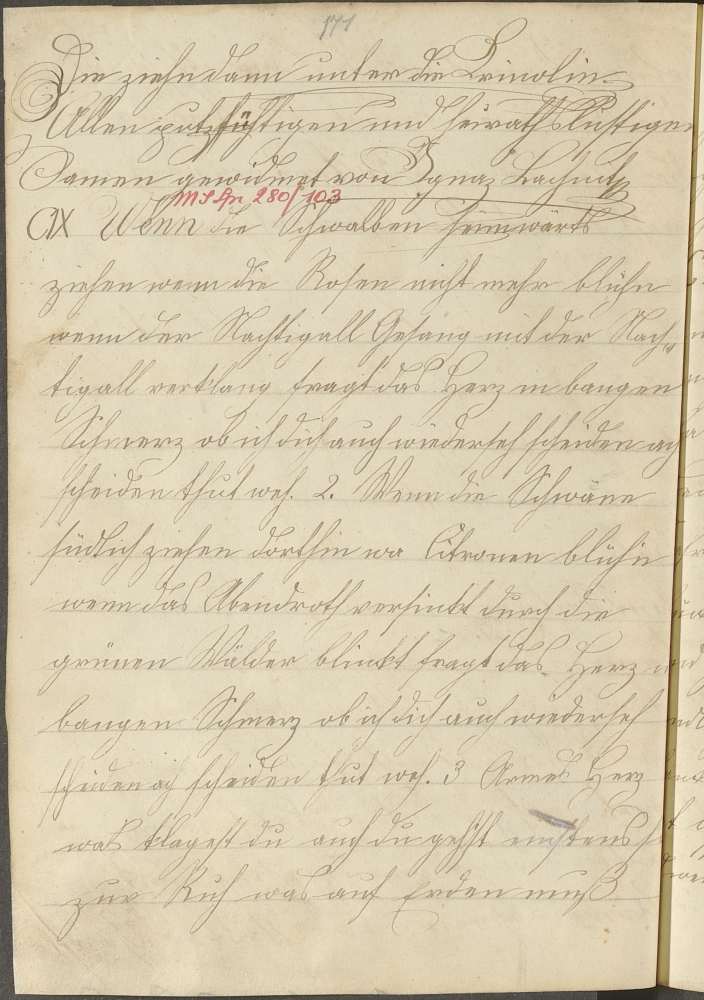 171
Die ziehn dann unter die Crinolin.
Allen putzsüchtigen und heirathslustigen
Damen gewidmet von Ignaz
MS An 280/103
CIX Wenn die Schwalben heimwärts
ziehen wenn die Rosen nicht mehr blühn
wenn der Nachtigall Gesang mit der Nach„
tigall verklang fragt das Herz in bangen
Schmerz ob ich dich auch wiederseh scheiden ach
scheiden thut weh. 2. Wenn die Schwäne
südlich ziehen dorthin wo Citronen blühn
wenn das Abendroth versinkt durch die
grünen Wälder blinkt fragt das Herz in
bangen Schmerz ob ich dich auch wiederseh
scheiden ach scheiden thut weh. 3 Armes Herz
was klagest du auch du gehst einstens
zur Ruh was auf Erden muß